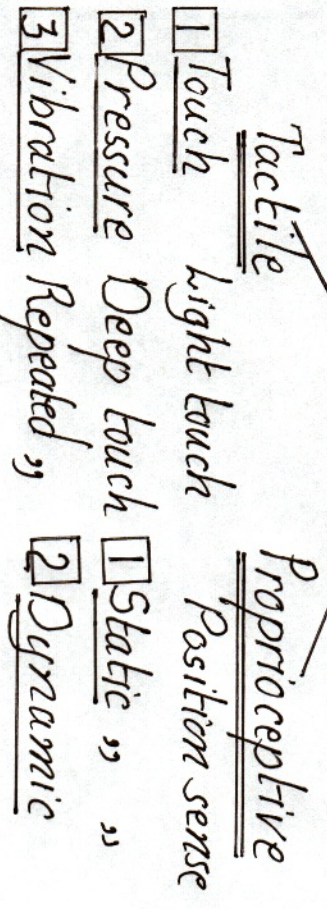 Tactile
1 Touch Light touch
2 Pressure Deep touch
3 Vibration Repeated „
Proprioceptive
Position sense
1 Static „ „
2 Dynamic